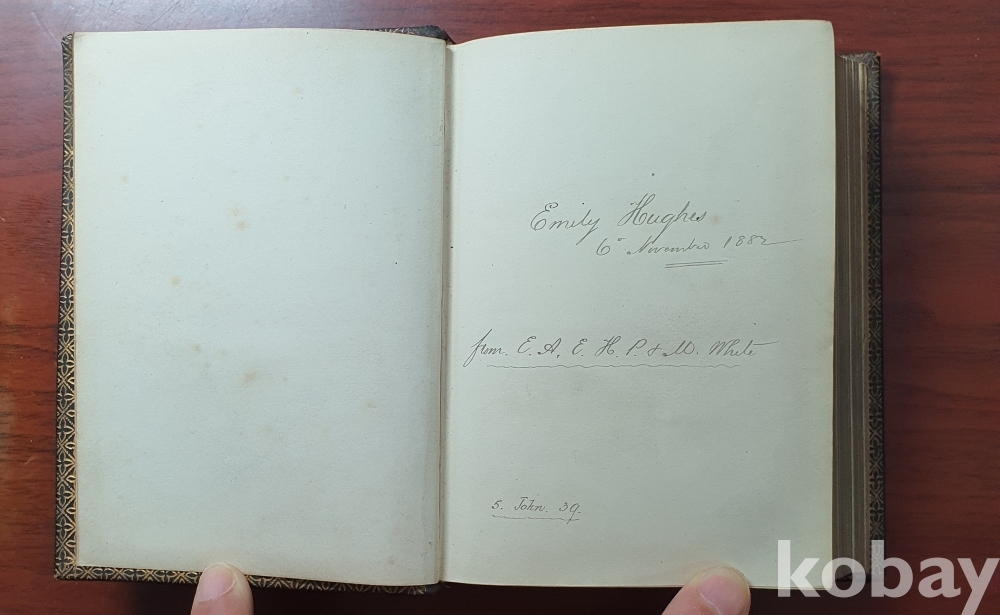 Emily Hughes
6º Novembro 1882
from. E. A. E. H. P. & M. White
5. John. 39.
kobay